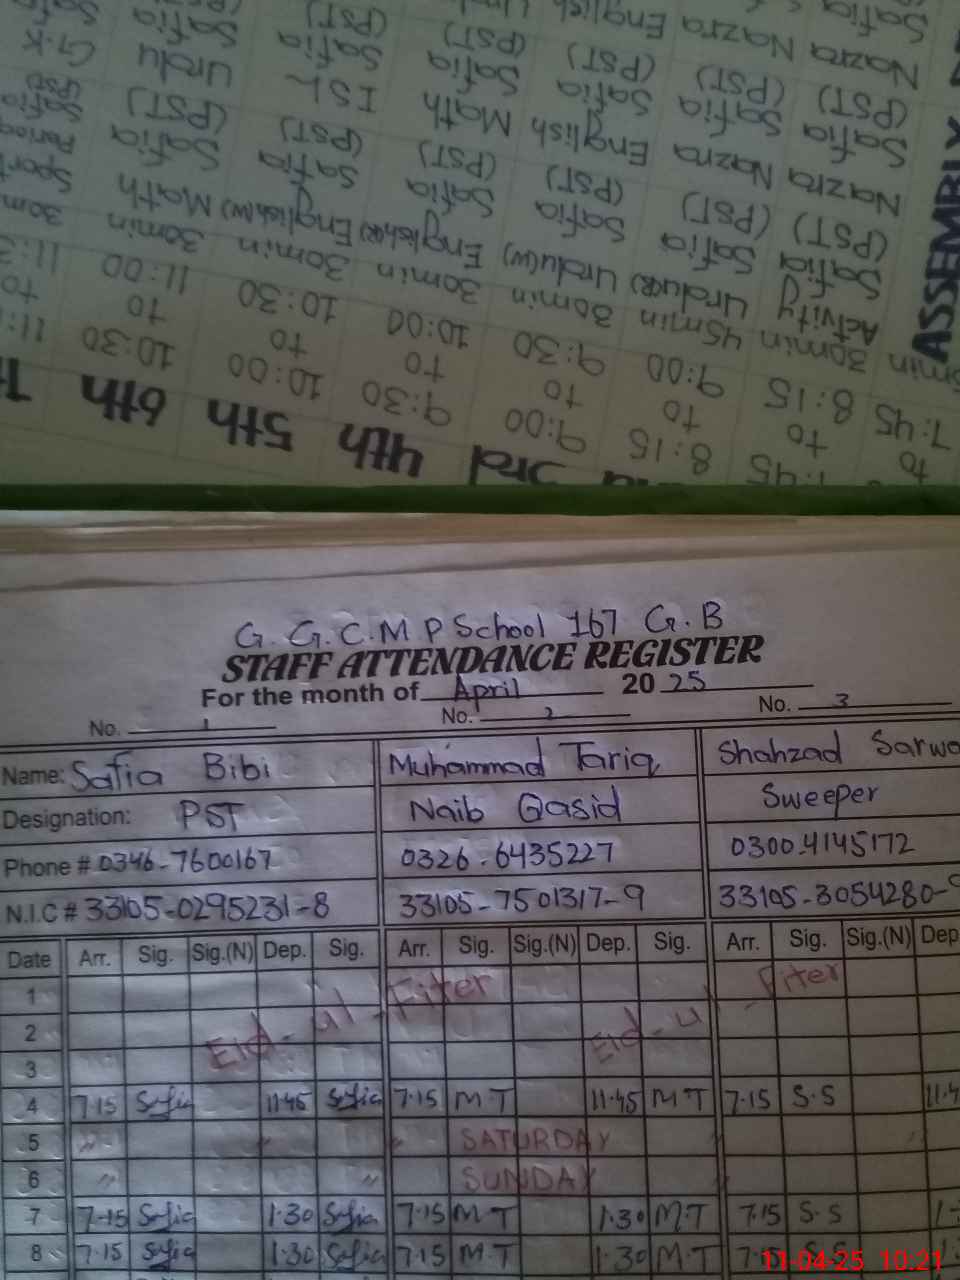 G. G. C. M P School 167 G. B
STAFF ATTENDANCE REGISTER
For the month of April 2025
No. 1 No. 2 No. 3
Name: Safia Bibi Muhammad Tariq Shahzad Sarwa
Designation: PST Naib Qasid Sweeper
Phone # 0346-7600167 0326-6435227 0300-4145172
N.I.C # 33105-0295231-8 33105-7501317-9 33105-3054280-9
Date Arr. Sig. Sig.(N) Dep. Sig. Arr. Sig. Sig.(N) Dep. Sig. Arr. Sig. Sig.(N) Dep
1
2 Eid-ul-Fiter Eid-ul-Fiter
3
4 7.15 Safia 11.45 Safia 7.15 M.T 11.45 M T 7.15 S.S 11.4
5 " " " SATURDAY " "
6 " " SUNDAY
7 7.15 Safia 1.30 Safia 7.15 M T 1.30 M.T 7.15 S.S 1.
8 7.15 Safia 1.30 Safia 7.15 M.T 1.30 M.T 7.15 S.S 1.
11-04-25 10:21
3rd 4th 5th 6th
7:45 to 8:15 8:15 to 9:00 9:00 to 9:30 9:30 to 10:00 10:00 to 10:30 10:30 to 11:00
30min 45min 30min 30min 30min 30min
ASSEMBLY
Actvity Urdu(R) Urdu(W) English(R) English(W) Math Sport Period
Safia (PST) Safia (PST) Safia (PST) Safia (PST) Safia (PST) Safia (PST) Safia (PST)
Nazra Nazra English Math ISL Urdu G.K
Safia (PST) Safia (PST) Safia (PST) Safia (PST) Safia (PST) Safia
Nazra Nazra English
Safia